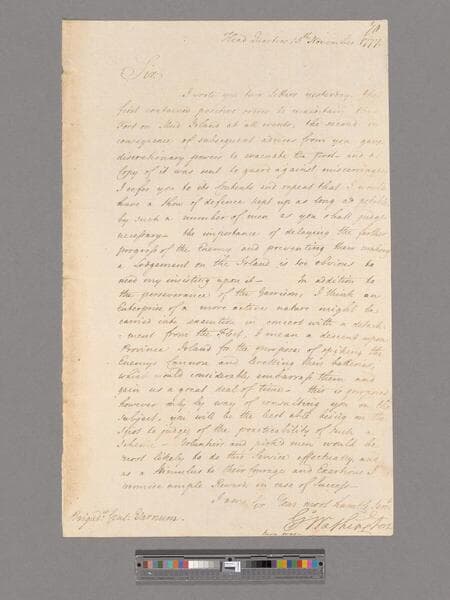 Head Quarters 15th November 1777.
Sir
I wrote you two Letters yesterday, the
first contained positive orders to maintain the
Fort on Mud Island at all events, the second in
consequence of subsequent advices from you gave
discretionary powers to evacuate the Post - and a
Copy of it was sent to guard against miscarriages
I refer you to the Contents and repeat that I would
have a Shew of defence kept up as long as possible
by such a number of men as you shall judge
necessary - the importance of delaying the further
progress of the Enemy and preventing their making
a Lodgement on the Island is too obvious to
need my insisting upon it - In addition to
the perseverance of the Garrison, I think an
Enterprise of a more active nature might be
carried into execution in concert with a detach-
-ment from the Fleet. I mean a descent upon
Province Island for the purpose of spiking the
Enemys Cannon and levelling their batteries,
which would considerably embarrass them and
gain us a great deal of time - this is proposed
however only by way of consulting you on the
subject, you will be the best able being on the
Spot to judge of the practicability of such a
Scheme - Volunteers and pick'd men would be
most likely to do this Service effectually and
as a Stimulus to their Courage and Exertions I
promise ample Reward in case of Success -
I am Sir Your most humble Servt
Go Washington
Brigadr. Genl. Varnum.